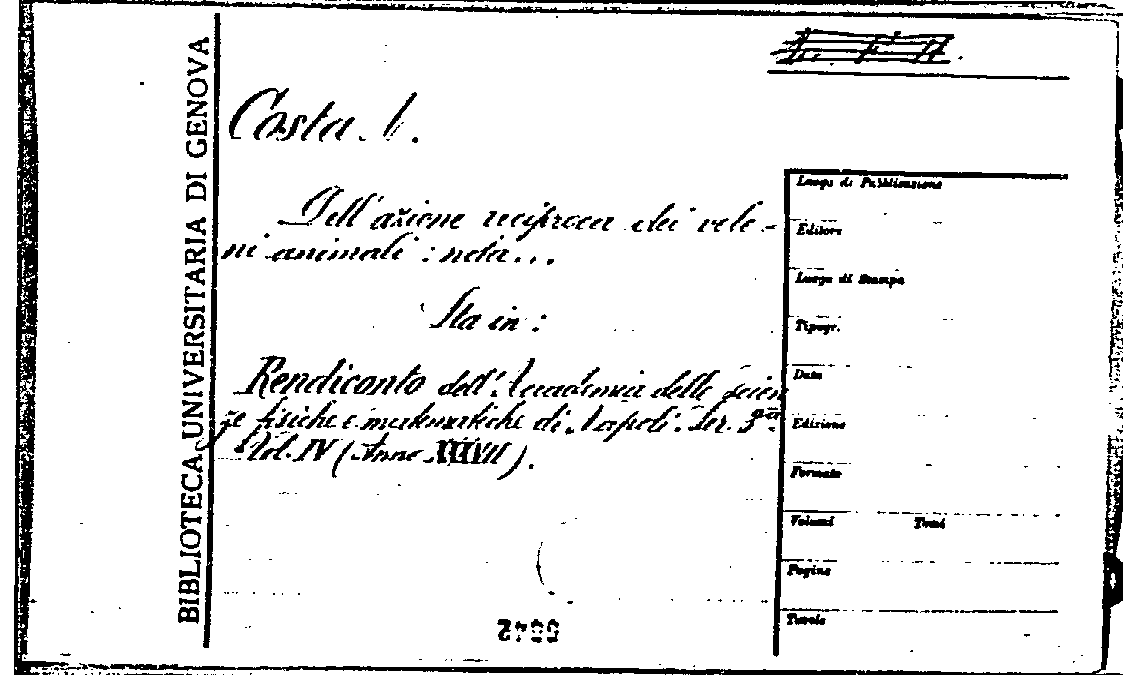 BIBLIOTECA UNIVERSITARIA DI GENOVA
Costa.
Dell'azione reciproca dei vele-
ni animali: nota...
Sta in:
Rendiconto dell'Accademia delle scien
ze fisiche e matematiche di Napoli. Ser. 3ª
Vol. IV (Anno XXXVII).
Luogo di Pubblicazione
Editore
Luogo di Stampa
Tipogr.
Data
Edizione
Formato
Volumi Tomi
Pagine
Tavole